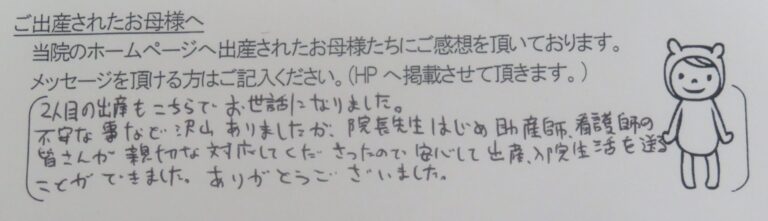 ご出産されたお母様へ
当院のホームページへ出産されたお母様たちにご感想を頂いております。
メッセージを頂ける方はご記入ください。(HPへ掲載させて頂きます。)
2人目の出産もこちらでお世話になりました。
不安な事など沢山ありましたが、院長先生はじめ助産師、看護師の
皆さんが親切な対応してくださったので安心して出産、入院生活を送る
ことができました。ありがとうございました。